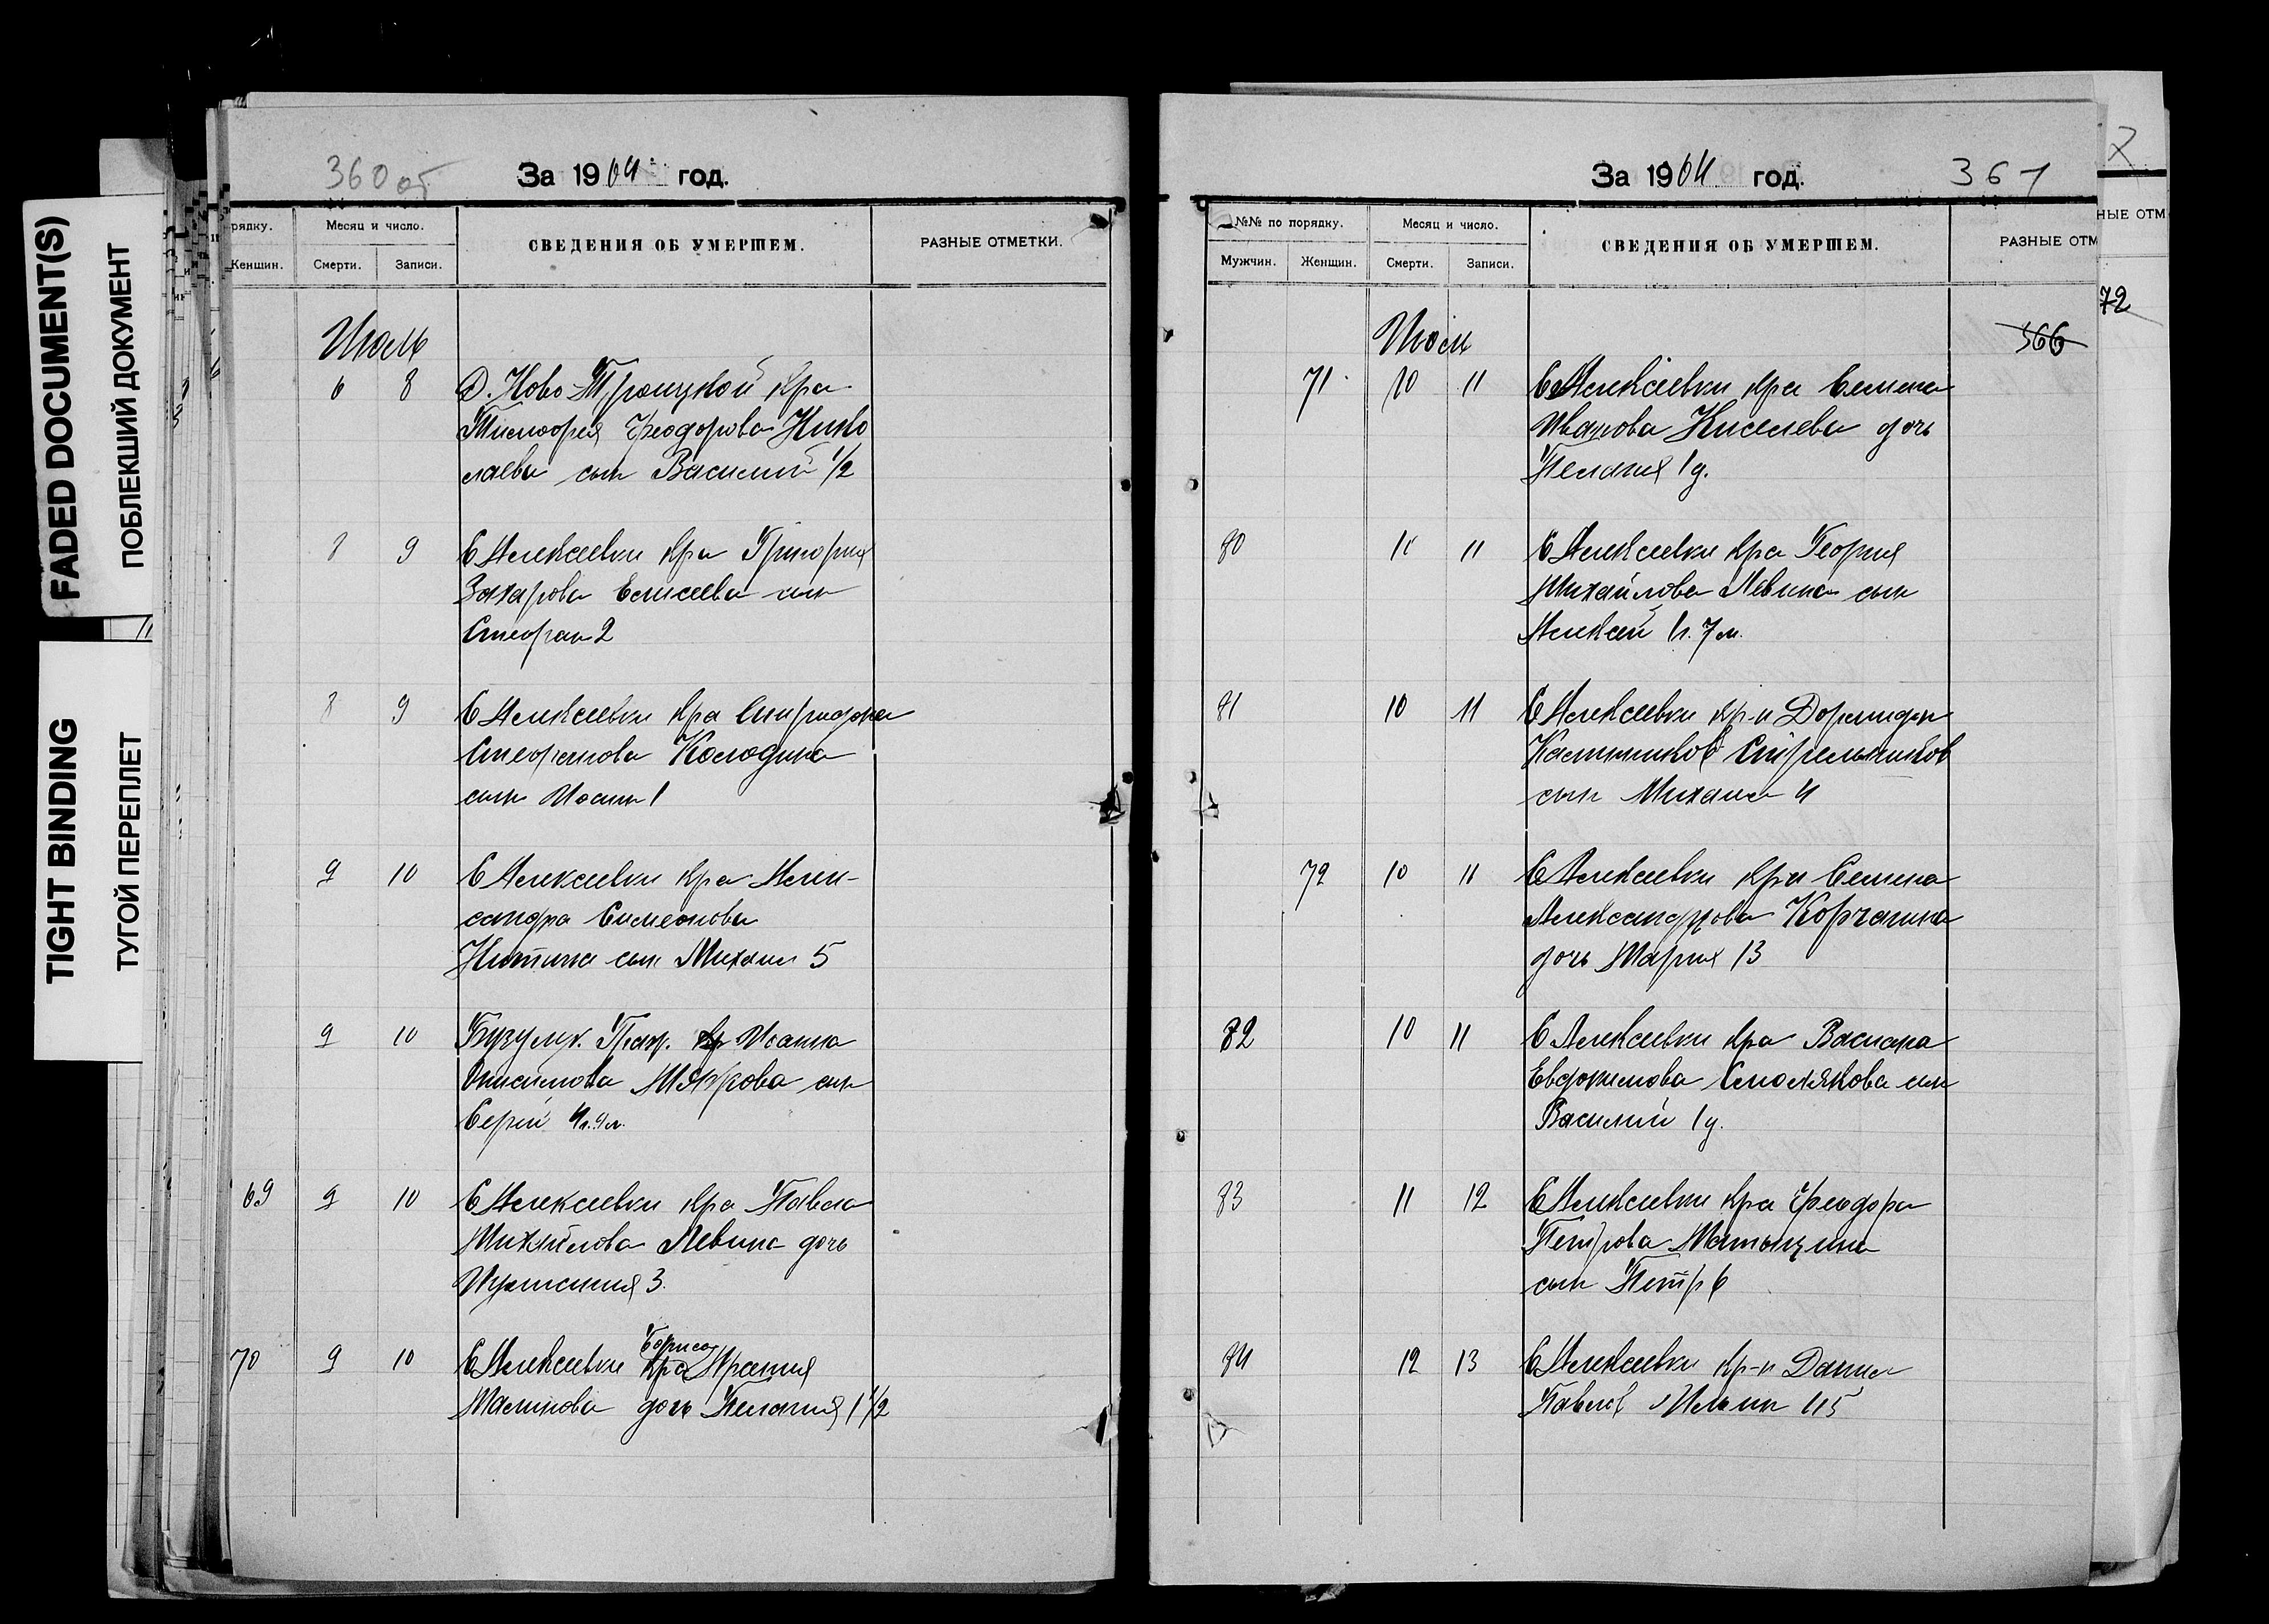 FADED DOCUMENT(S)
ПОБЛЕКШИЙ ДОКУМЕНТ
TIGHT BINDING
ТУГОЙ ПЕРЕПЛЕТ
360 об
За 1904 год.
рядку.
Женщин.
Месяц и число.
Смерти.
Записи.
СВЕДЕНИЯ ОБ УМЕРШЕМ.
РАЗНЫЕ ОТМЕТКИ.
Июль
6 8 Д. Ново-Троицкой кр-а
Тимофея Феодорова Нико
лаева сын Василий 1/2
8 9 С Алексеевки кр-а Григория
Захарова Елисеева сын
Стефан 2
8 9 С Алексеевки кр-а Спиридона
Стефанова Колодина
сын Иоанн 1
9 10 С Алексеевки кр-а Алек-
сандра Симеонова
Никитина сын Михаил 5
9 10 Бузулук. Иоанна
Анисимова сын
Сергей
69 9 10 С Алексеевки кр-а Павла
Михайлова Левина дочь
3.
70 9 10 С Алексеевки кр-а
Борисо
Малинова дочь Пелагия 1 1/2
За 1904 год.
361
№№ по порядку.
Мужчин.
Женщин.
Месяц и число.
Смерти.
Записи.
СВЕДЕНИЯ ОБ УМЕРШЕМ.
РАЗНЫЕ ОТМ
НЫЕ ОТМ
72
366
Июль
71 10 11 С Алексеевки кр-а Семена
Иванова Киселева дочь
Пелагия 1 д.
80 11 11 С Алексеевки кр-а Георгия
Михайлова Левина сын
Алексей 1 г. 7 м.
81 10 11 С Алексеевки кр-н Доримедон
Стрельников
сын Михаил 4
72 10 11 С Алексеевки кр-а Семена
Александрова Корчагина
дочь Мария 13
82 10 11 С Алексеевки кр-а
Евдокимова Смолякова сын
Василий 1 д.
83 11 12 С Алексеевки кр-а Феодора
Петрова Матыцина
сын Петр 6
84 12 13 С Алексеевки кр-н Данил
Павлов Ильин 45